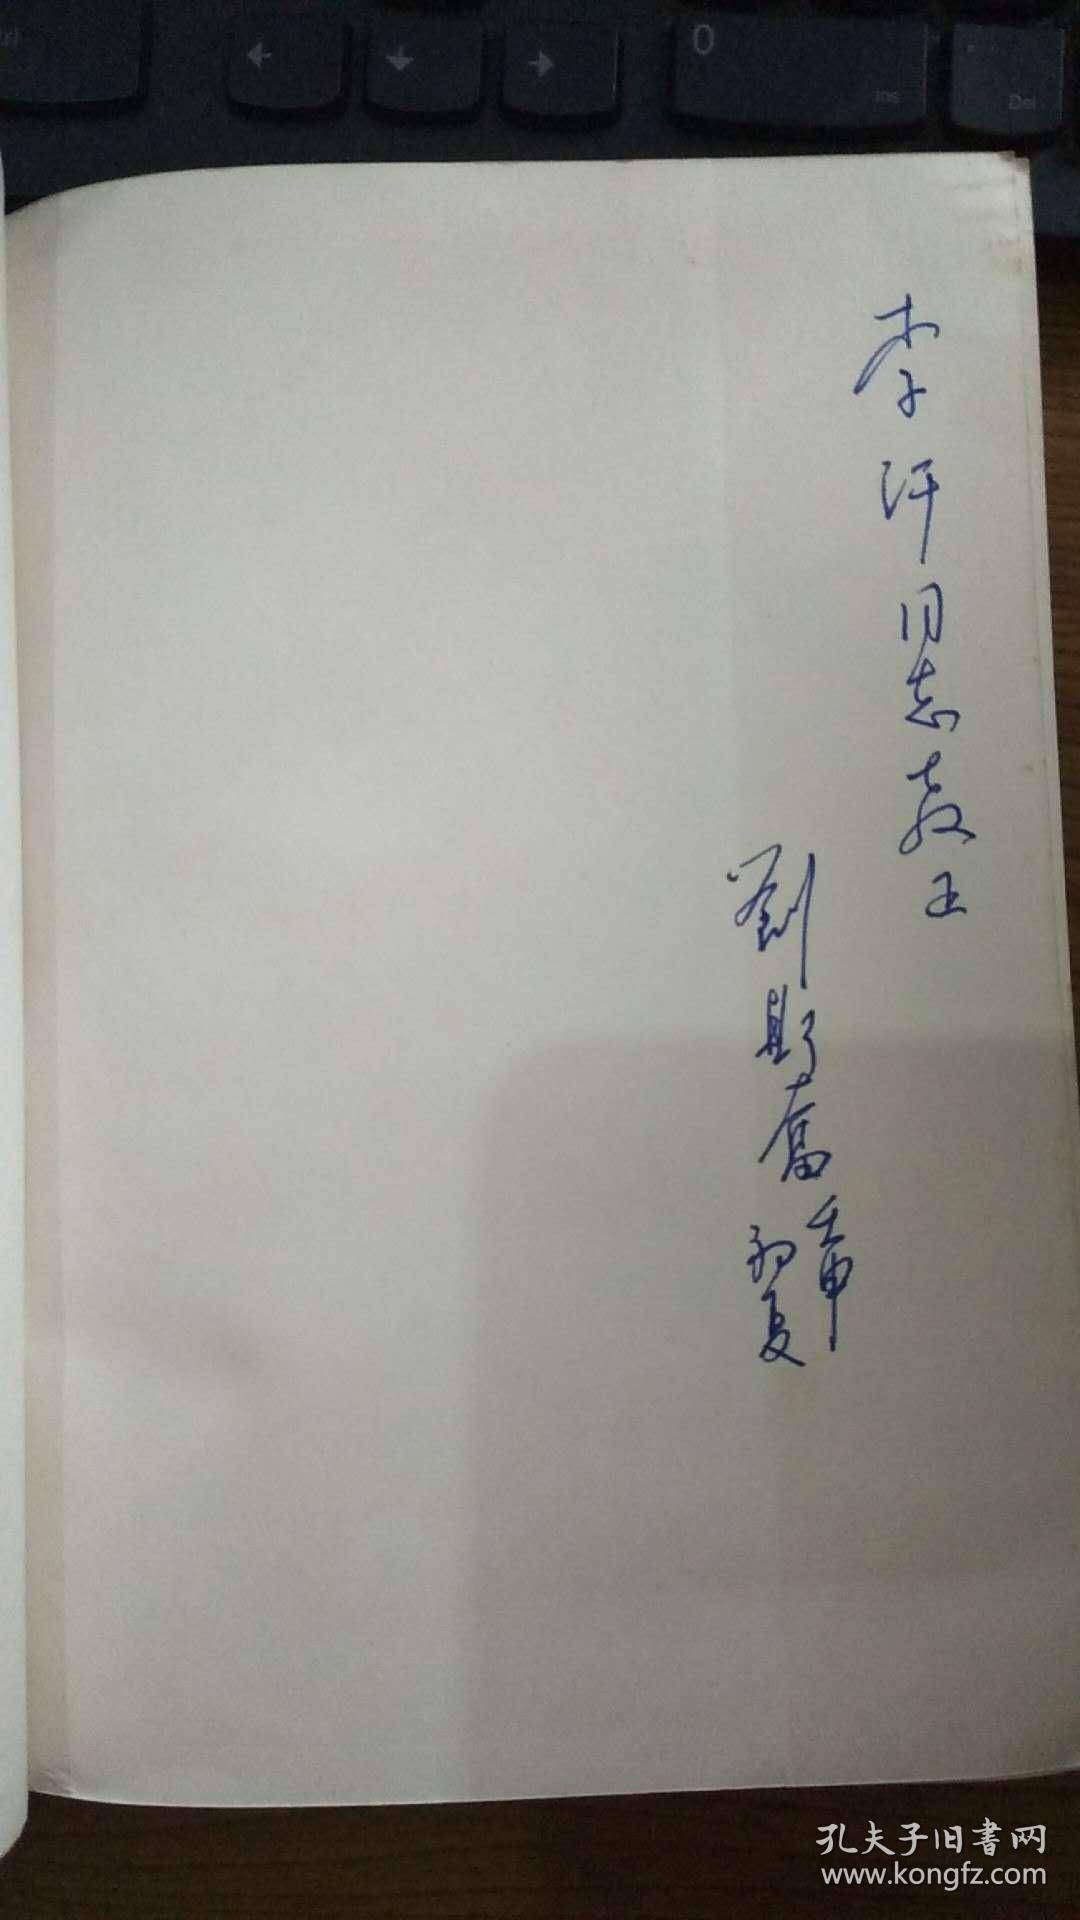 0
Ins
Del
李汗同志教正
劉斯奮
壬申
初夏
孔夫子旧書网
www.kongfz.com